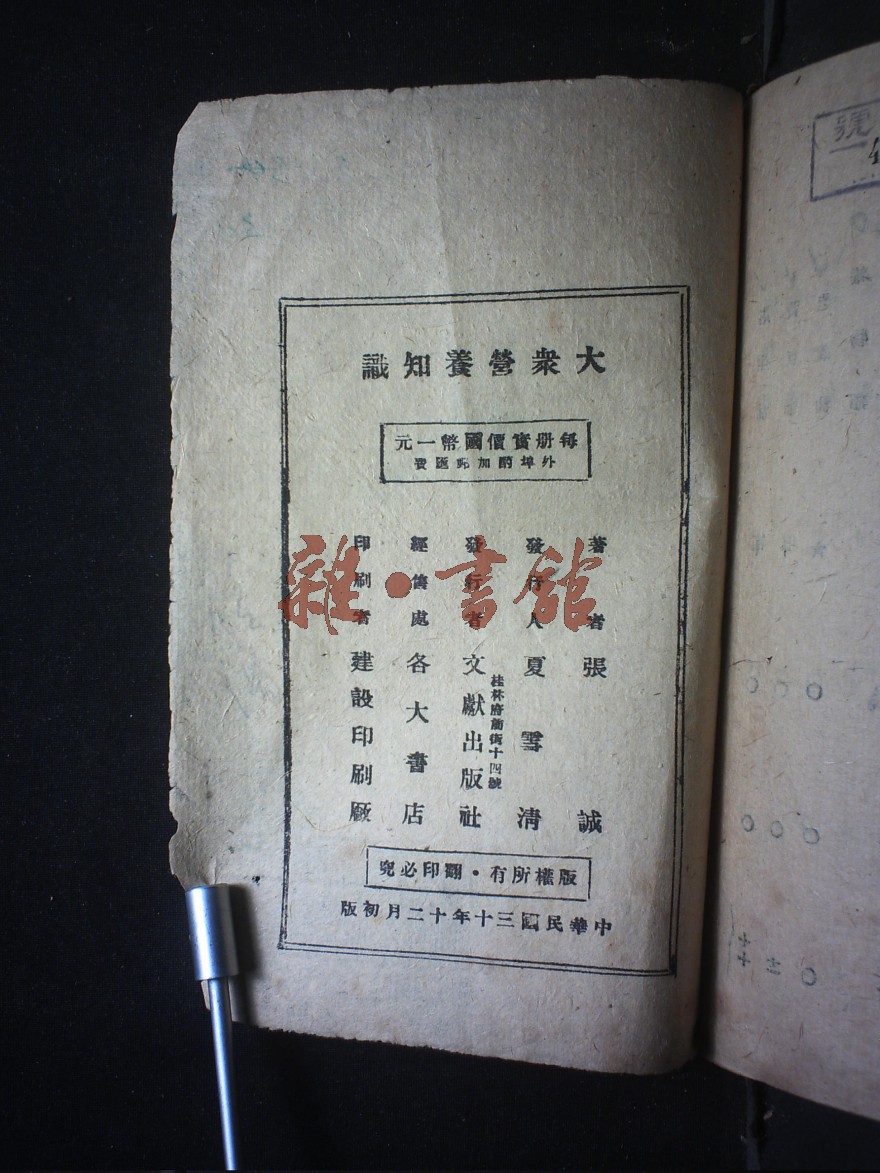 大衆營養知識
每册實價國幣一元
外埠酌加郵匯費
著者 張誠
發行人 夏雪清
發行者 文獻出版社
桂林府前街十四號
經售處 各大書店
印刷者 建設印刷廠
版權所有・翻印必究
中華民國三十年十二月初版
雜・書館
號
一